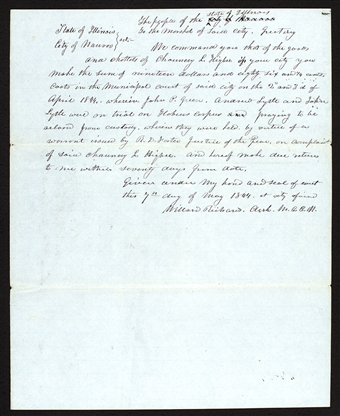 The people of the State of Illinois City of Nauvoo
State of Illinois To the Marshal of said City. Greeting
City of Nauvoo Set.
We command you that of the goods
and chattels of Chauncy L Higbee of your city you
make the sum of nineteen dollars and eighty six and cents
Costs in the Municipal court of said city on the 2d and 3d of
April 1844, wherein John P. Green, Andrew Lytle and John
Lytle were on trial on Habeas corpus praying to be
released from custody, where they were held by virtue of a
warrant issued by R. D. Foster Justice of the Peace, on complaint
of said Chauncy L Higbee, and hereof make due return
to me within seventy days from date,
Given under my hand and seal of court
this 7th day of May 1844. at city of said
Willard Richards. Clerk. M. C. C. N.